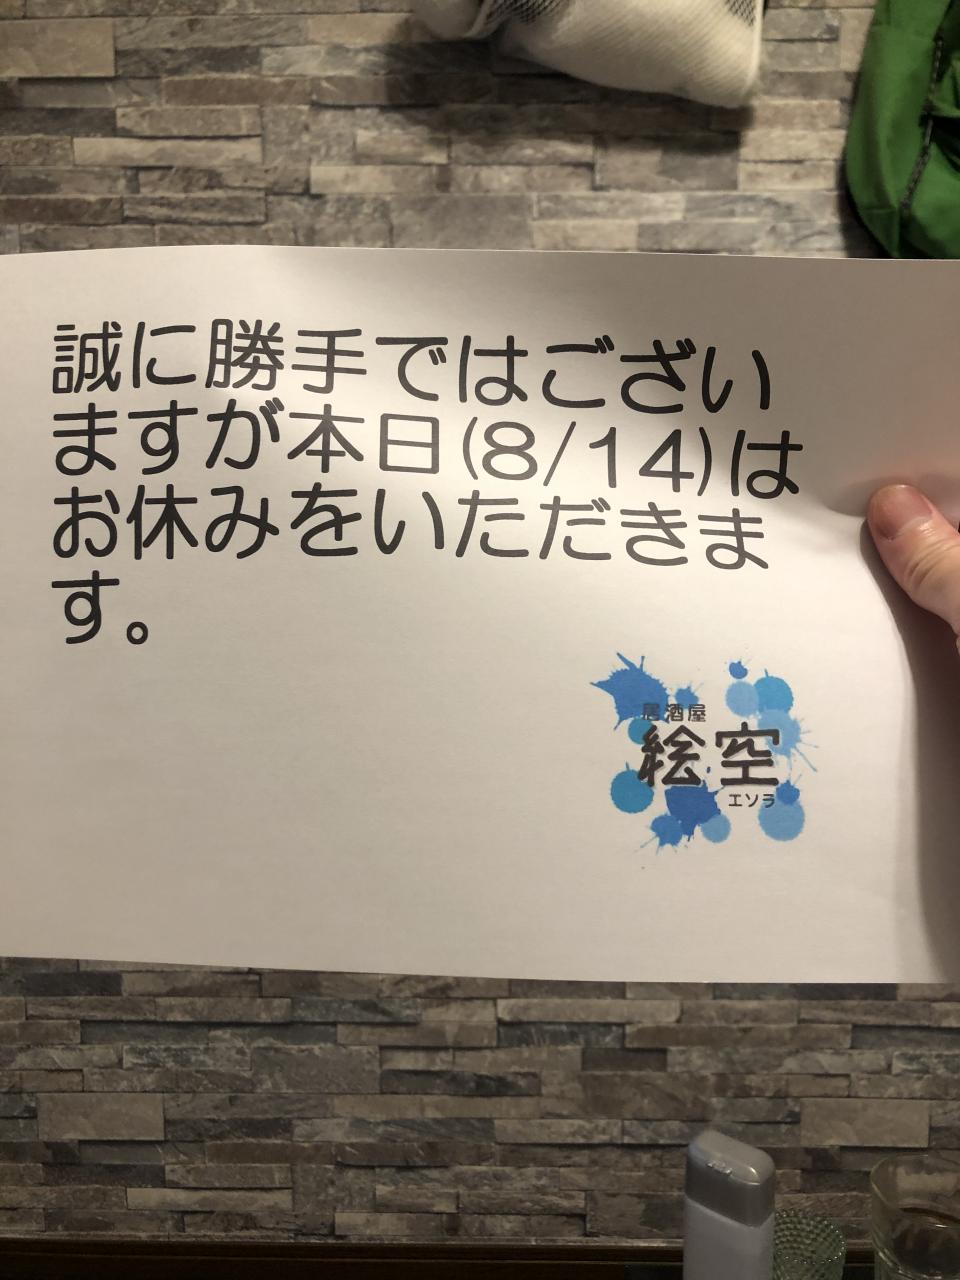 誠に勝手ではござい
ますが本日(8/14)は
お休みをいただきま
す。
居酒屋
絵空
エソラ